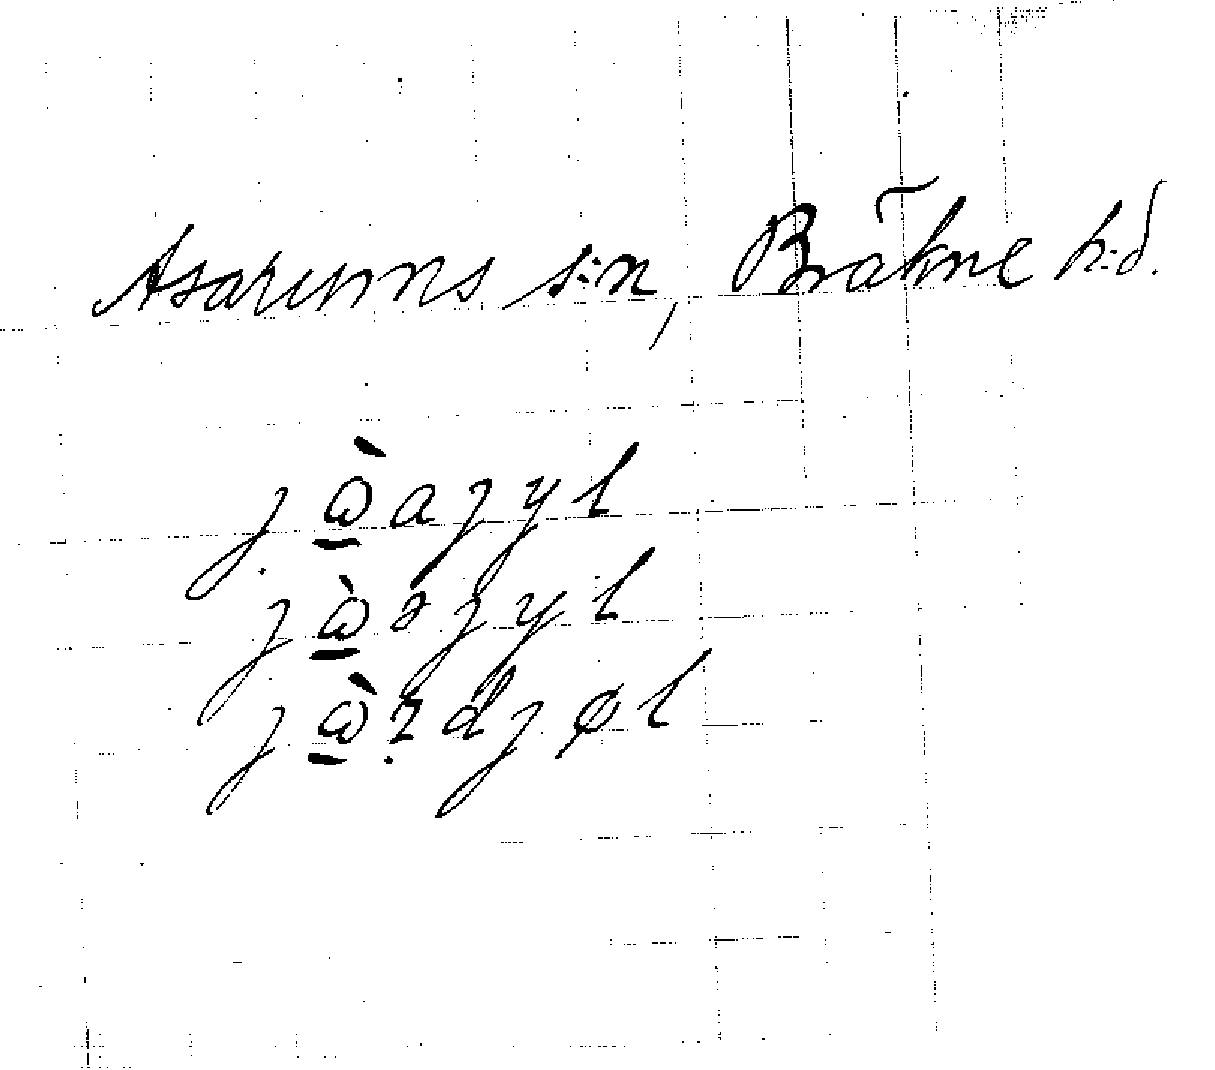 Asarums s:n, Bräkne h:d.
jὼ̱ajyl
jὼ̱əjyl
jὼ̱ɀ̣djøl